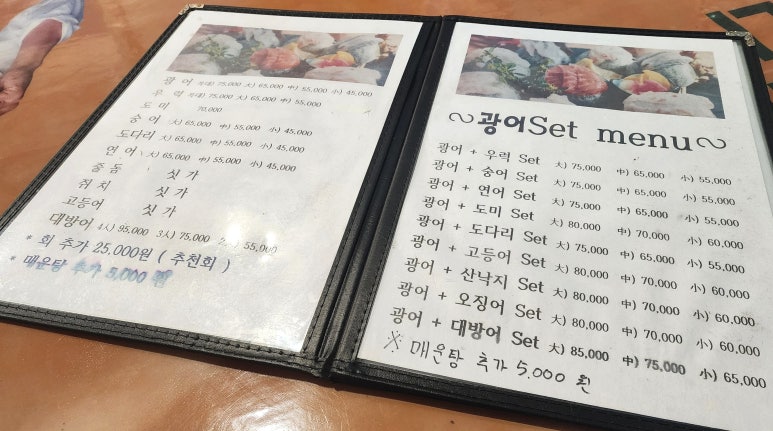 광 어 특대) 75,000 大) 65,000 中) 55,000 小) 45,000
우 럭 특大) 75,000 大) 65,000 中) 55,000
도 미 70,000
숭 어 大) 65,000 中) 55,000 小) 45,000
도다리 大) 65,000 中) 55,000 小) 45,000
연 어 大) 65,000 中) 55,000 小) 45,000
줄 돔 싯 가
쥐 치 싯 가
고등어 싯 가
대방어 4시) 95,000 3시) 75,000 55,000
* 회 추가 25,000원 ( 추천회 )
* 매운탕 추가 5,000 원
~광어Set menu~
광어 + 우럭 Set 大) 75,000 中) 65,000 小) 55,000
광어 + 숭어 Set 大) 75,000 中) 65,000 小) 55,000
광어 + 연어 Set 大) 75,000 中) 65,000 小) 55,000
광어 + 도미 Set 大) 80,000 中) 70,000 小) 60,000
광어 + 도다리 Set 大) 75,000 中) 65,000 小) 55,000
광어 + 고등어 Set 大) 80,000 中) 70,000 小) 60,000
광어 + 산낙지 Set 大) 80,000 中) 70,000 小) 60,000
광어 + 오징어 Set 大) 80,000 中) 70,000 小) 60,000
광어 + 대방어 Set 大) 85,000 中) 75,000 小) 65,000
※ 매운탕 추가 5.000 원